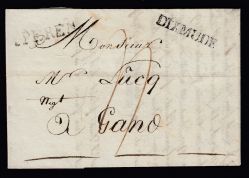 YPEREN
DIXMUDE
Monsieur
Mr Lucq
Negt
a Gand